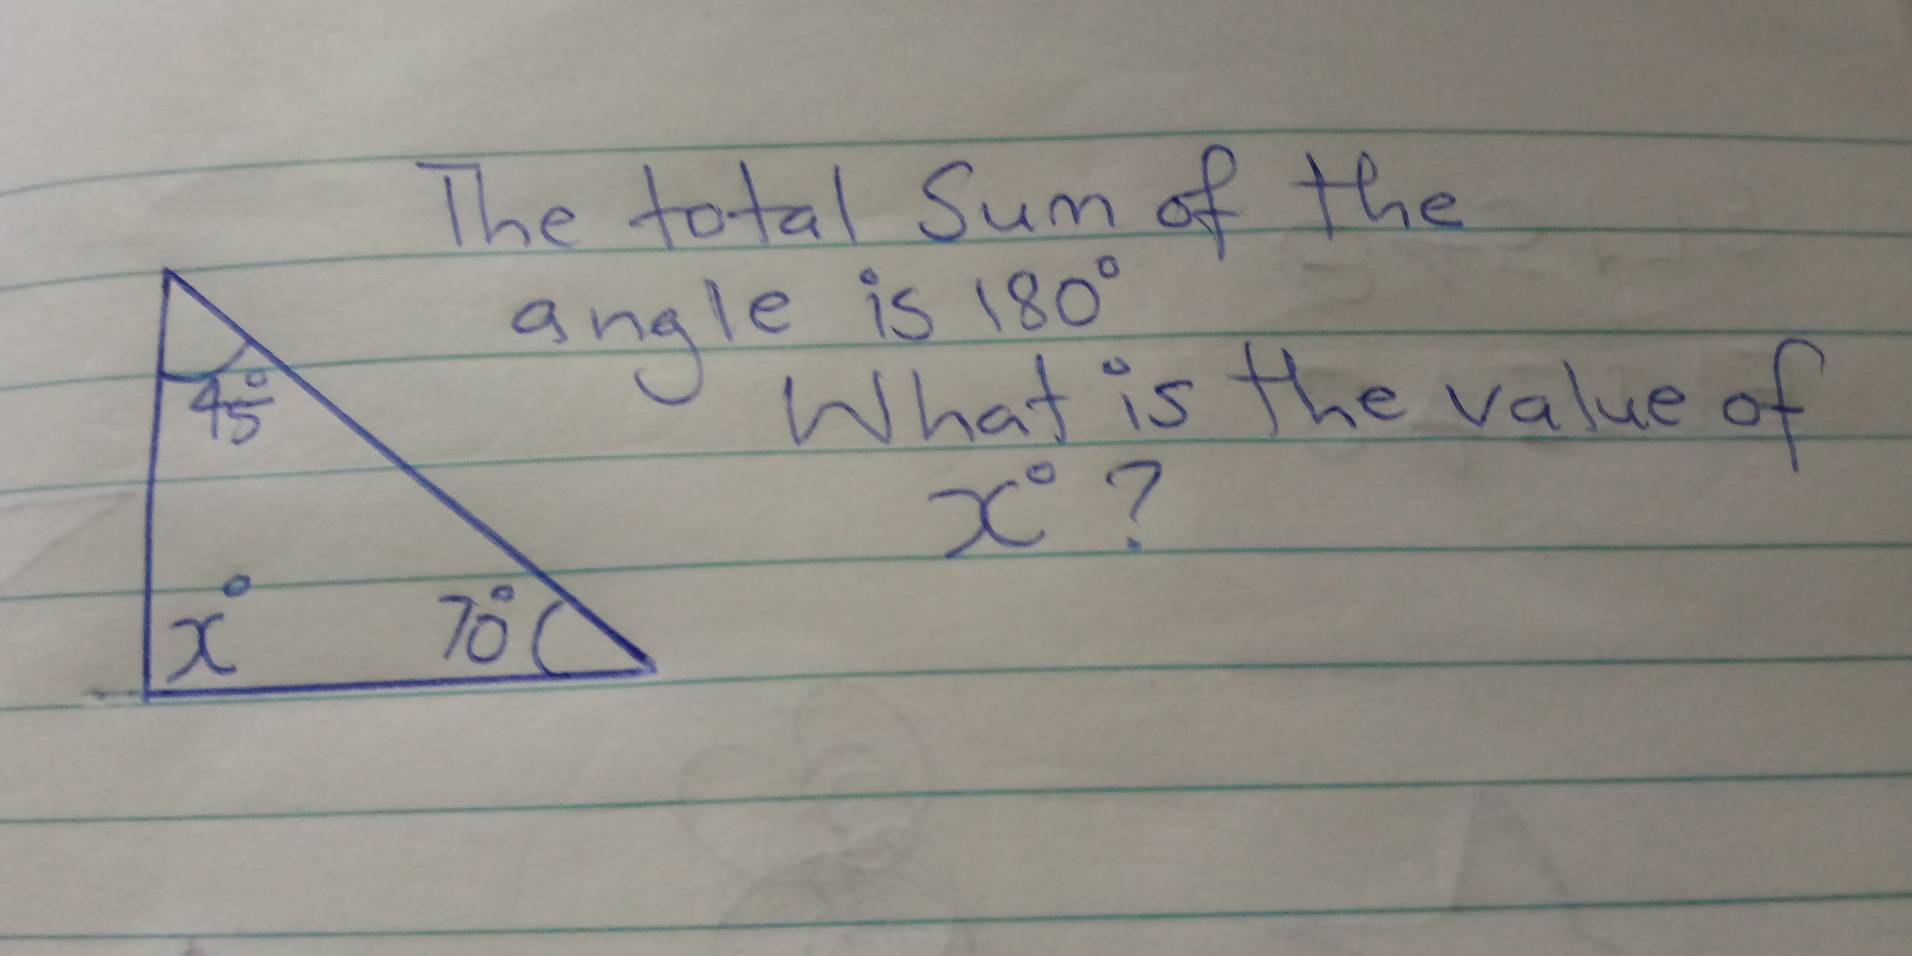 The total Sum of the
angle is 180°
What is the value of
x° ?
45°
x°
70°